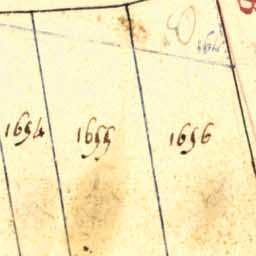 1654 1655 1656